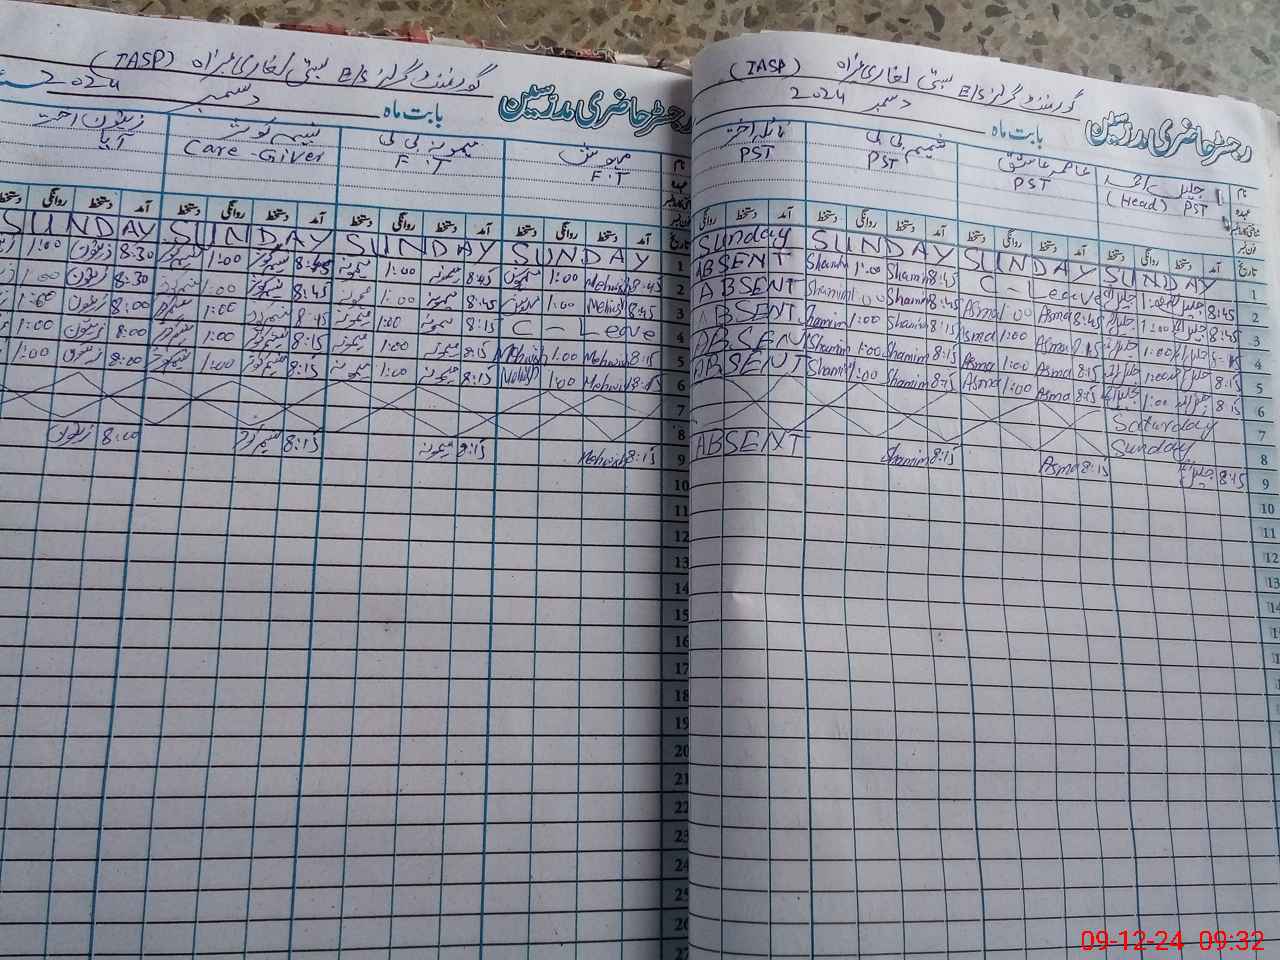 رجسٹر حاضری مدرسین
گورنمنٹ گرلز E/S بستی لغاری براہ (TASP)
بابت ماہ دسمبر 2024
نام
عہدہ
جلیل احمد PST (Head)
عاصمہ عاشق PST
شمیم بی بی PST
نائلہ اختر PST
تاریخ آمد دستخط روانگی دستخط آمد دستخط روانگی دستخط آمد دستخط روانگی دستخط آمد دستخط روانگی
1 SUNDAY SUNDAY SUNDAY Sunday
2 8:45 1:00 C - Leave 8:45 Shamim 1:00 Shamim ABSENT
3 8:45 1:00 8:45 Asma 1:00 Asma 8:45 Shamim 1:00 Shamim ABSENT
4 1:00 8:15 Asma 1:00 Asma 8:15 Shamim 1:00 Shamim ABSENT
5 8:15 1:00 8:15 Asma 1:00 Asma 8:15 Shamim 1:00 Shamim ABSENT
6 8:15 1:00 8:15 Asma 1:00 Asma 8:15 Shamim 1:00 Shamim ABSENT
7 Saturday
8 Sunday
9 8:45 8:15 Asma 8:15 Shamim ABSENT
10
11
12
13
14
15
16
رجسٹر حاضری مدرسین
گورنمنٹ گرلز E/S بستی لغاری براہ (TASP)
بابت ماہ دسمبر 2024
نام
مہوش F.T
میمونہ بی بی F.T
نسیم کوثر Care-Giver
زیتون اختر آیا
تاریخ آمد دستخط روانگی دستخط آمد دستخط روانگی دستخط آمد دستخط روانگی دستخط آمد دستخط روانگی دستخط
1 SUNDAY SUNDAY SUNDAY SUNDAY
2 8:45 Mehwish 1:00 8:45 میمونہ 1:00 میمونہ 8:45 1:00 8:30 زیتون 1:00
3 8:45 Mehwish 1:00 8:45 میمونہ 1:00 میمونہ 8:45 1:00 8:30 زیتون 1:00
4 C - Leave 8:15 میمونہ 1:00 میمونہ 8:45 1:00 8:00 زیتون 1:00
5 8:15 Mehwish 1:00 Mehwish 8:15 میمونہ 1:00 میمونہ 8:15 1:00 8:00 زیتون 1:00
6 8:15 Mehwish 1:00 Mehwish 8:15 میمونہ 1:00 میمونہ 8:15 1:00 8:00 زیتون 1:00
7
8
9 8:15 Mehwish 8:15 میمونہ 8:15 8:00 زیتون
10
11
12
13
14
15
16
17
18
19
20
21
22
23
24
25
26
27
09-12-24 09:32